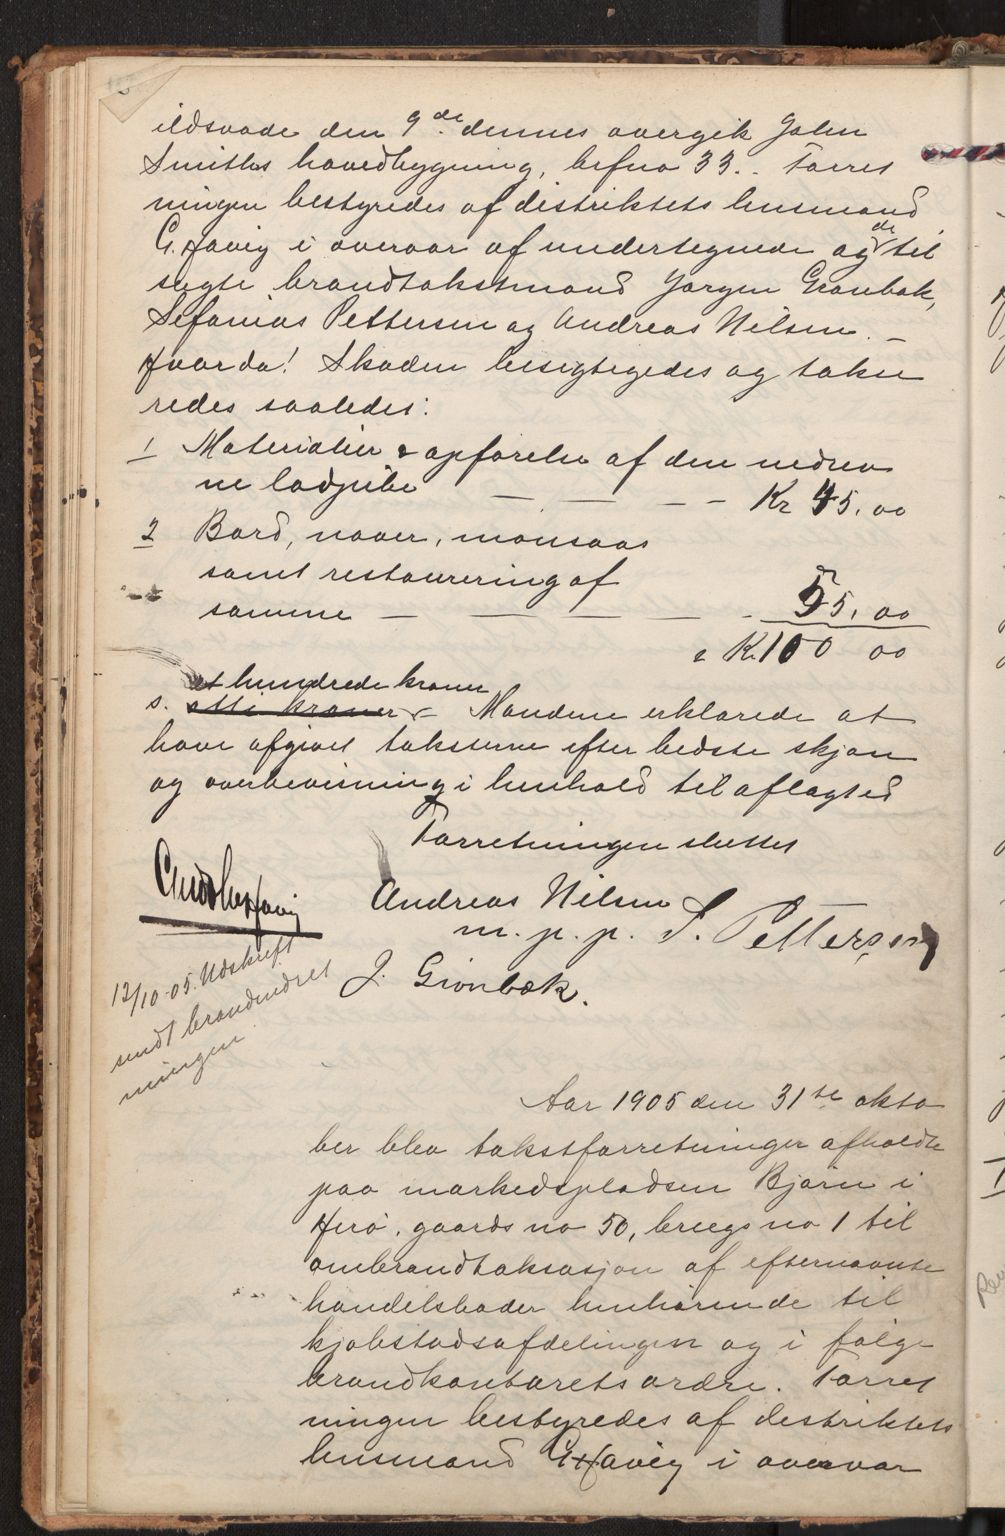 ildsvade den 9de dennes overgik John
Smiths hovedbygning, brfno 33. Forret
ningen bestyredes af distriktets lensmand
G. Havig i overvær af undertegnede og de til
sagte brandtakstmænd Jørgen Grønbæk,
Sefanias Pettersen og Andreas Nilsen. —
Hvorda! Skaden besigtigedes og takse
redes saaledes:
1 Materialier & opførelse af den nedrev
ne ladpibe — — — Kr 45,00
2 Bord, næver,
samt restaurering af
samme — — — — 55,00
Kr. 100 00
et hundrede kroner
s. otti kroner — Mændene erklærede at
have afgivet taksterne efter bedste skjøn
og overbevisning i henhold til aflagt ed
Forretningen sluttet
Andreas Nilsen
m. p. p. S. Pettersen
J. Grønbæk.
12/10-05. Udskrift
sendt brandindret
ningen
Aar 1905 den 31te okto
ber blev takstforretninger afholdte
paa markedspladsen Bjørn i
Herø, gaards no 50, brugs no 1 til
ombrandtaksasjon af efternævnte
handelsboder henhørende til
kjøbstadsafdelingen og i følge
brandkontorets ordre. Forret
ningen bestyredes af distriktets
lensmand G Havig i overvær